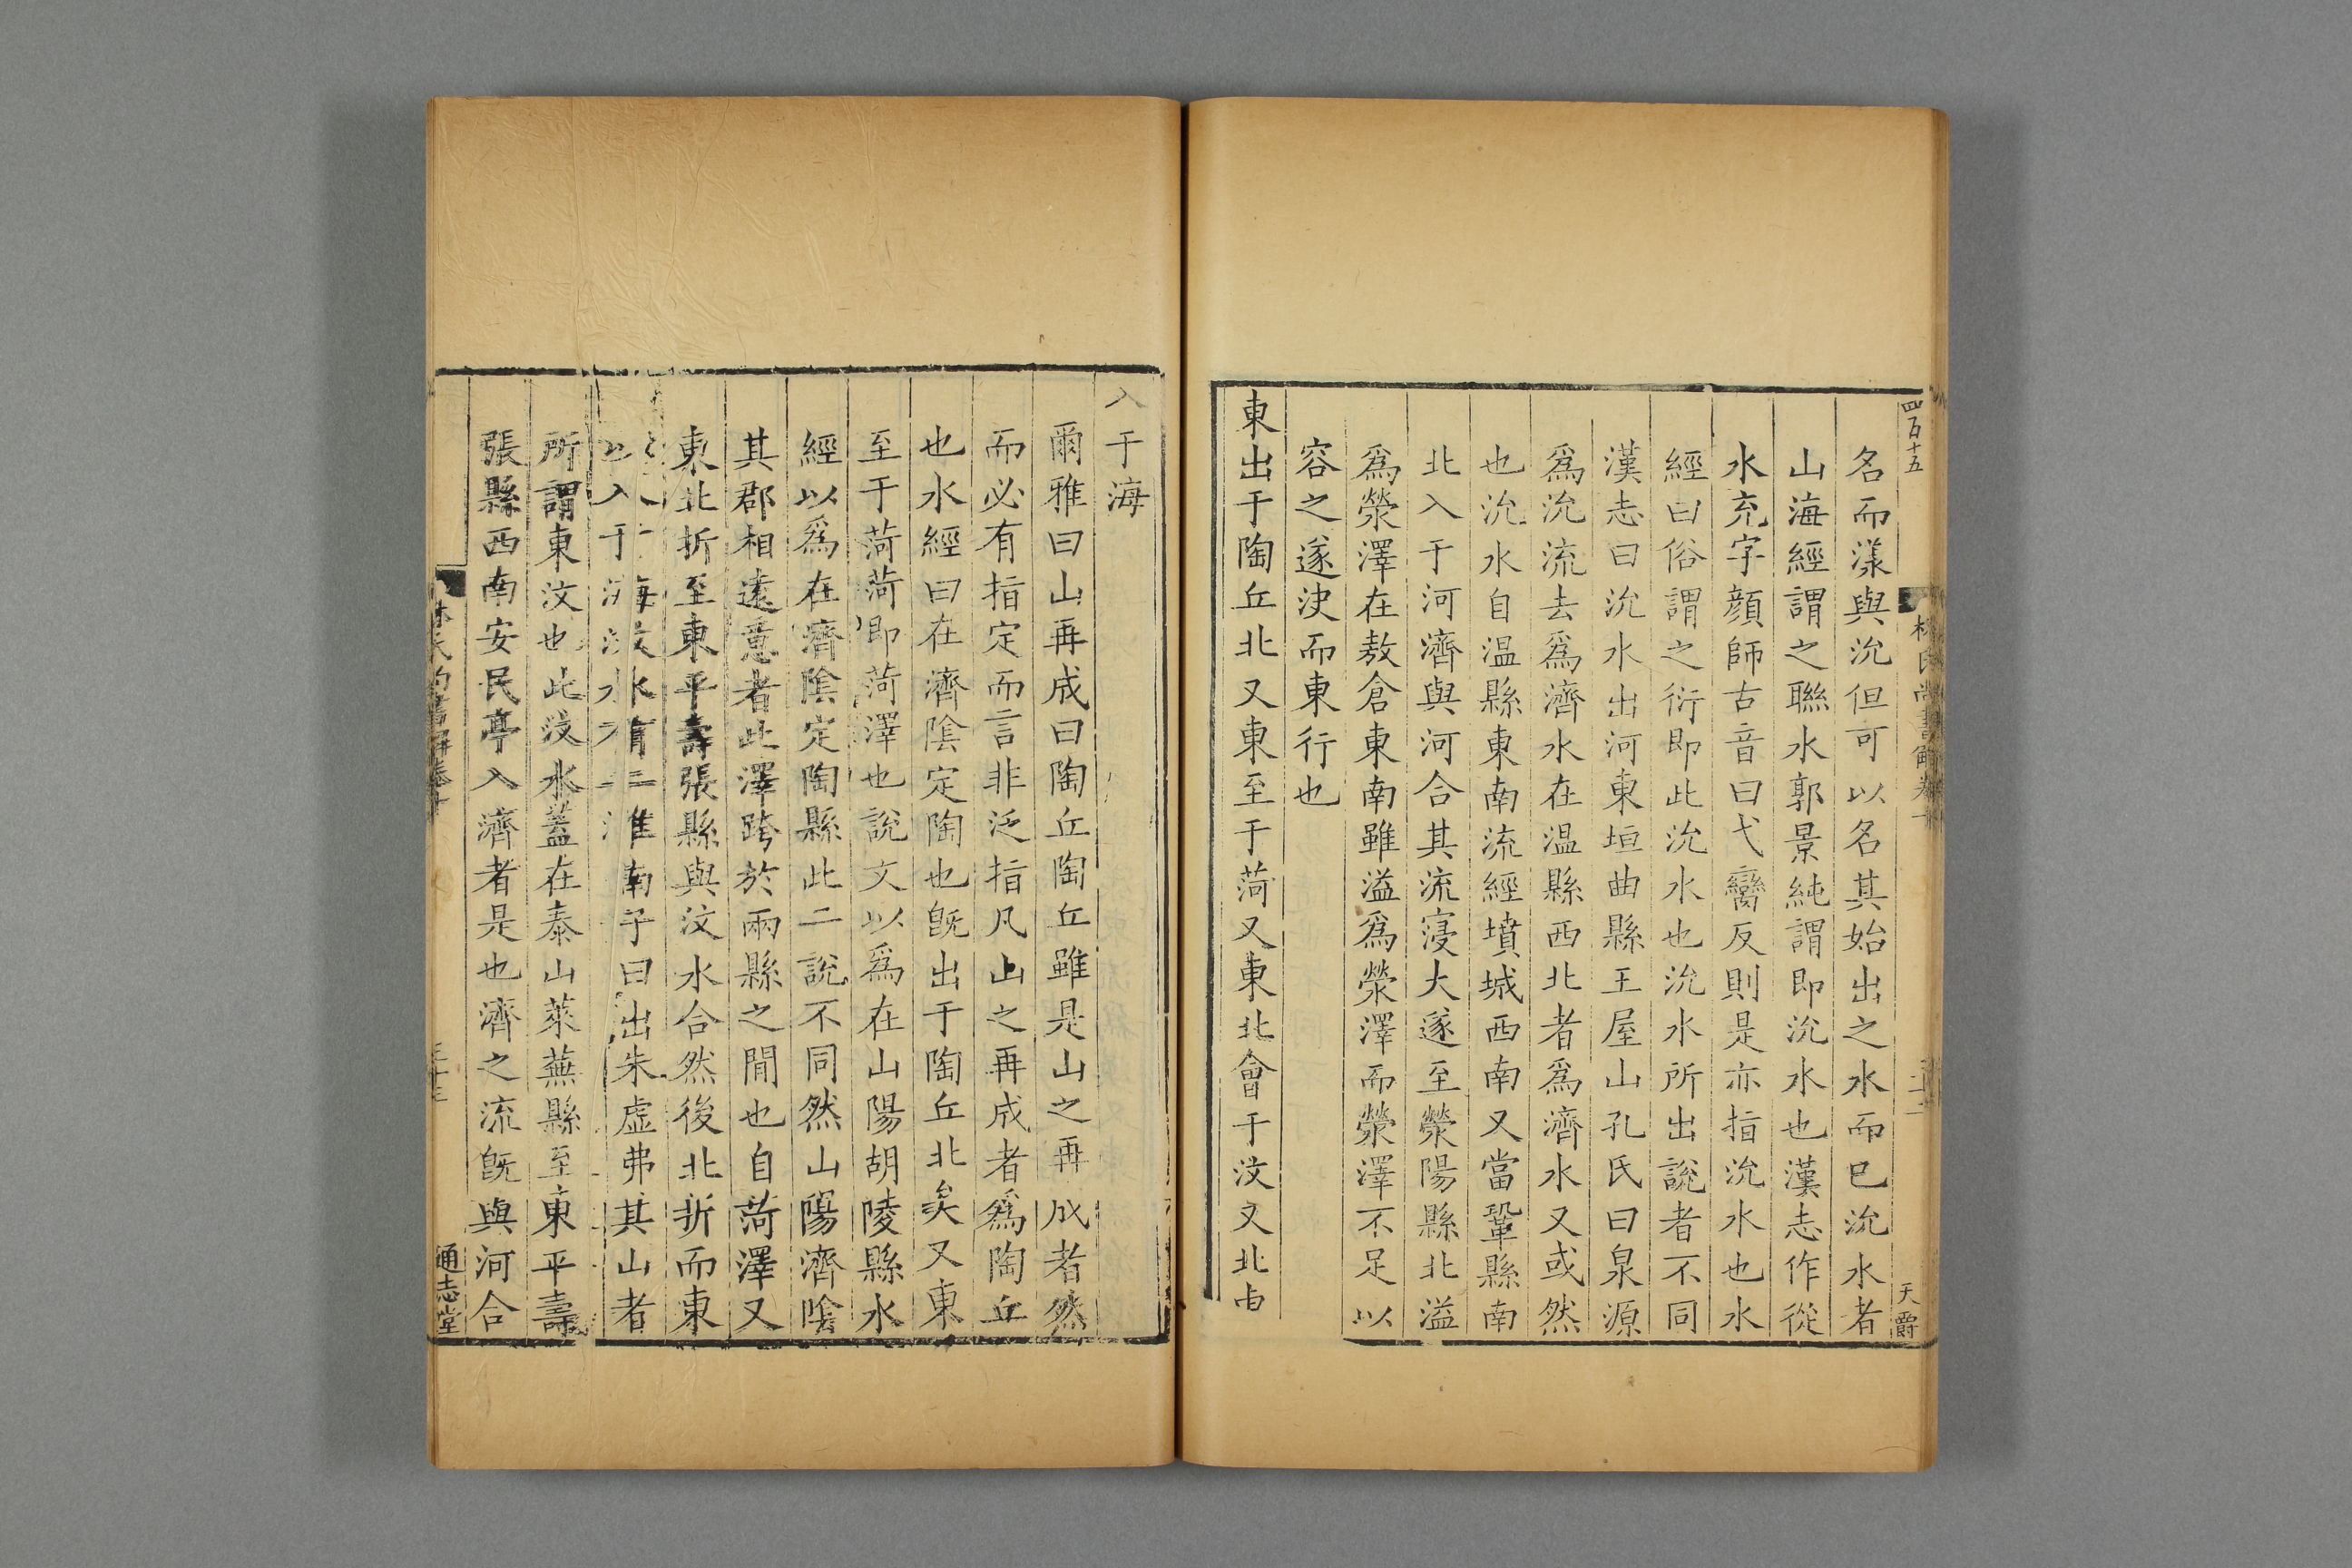 四百十五
天爵
名而漾與沇但可以名其始出之水而已沇水者
山海經謂之聯水郭景純謂即沇水也漢志作從
水兖字顔師古音曰弋臠反則是亦指沇水也水
經曰俗謂之衍即此沇水也沇水所出說者不同
漢志曰沇水出河東垣曲縣王屋山孔氏曰泉源
爲沇流去爲濟水在温縣西北者爲濟水又或然
也沇水自温縣東南流經墳城西南又當鞏縣南
北入于河濟與河合其流寖大遂至滎陽縣北溢
爲滎澤在敖倉東南雖溢爲滎澤而滎澤不足以
容之遂決而東行也
東出于陶丘北又東至于菏又東北會于汶又北
入于海
爾雅曰山再成曰陶丘陶丘雖是山之再成者然
而必有指定而言非泛指凡山之再成者爲陶丘
也水經曰在濟陰定陶也旣出于陶丘北矣又東
至于菏菏即菏澤也說文以爲在山陽胡陵縣水
經以爲在濟陰定陶縣此二說不同然山陽濟陰
其郡相遠意者此澤跨於兩縣之間也自菏澤又
東北折至東平壽張縣與汶水合然後北折而東
以入于海汶水有二淮南子曰出朱虛弗其山者
所謂東汶也此汶水蓋在泰山萊蕪縣至東平壽
張縣西南安民亭入濟者是也濟之流旣與河合
通志堂